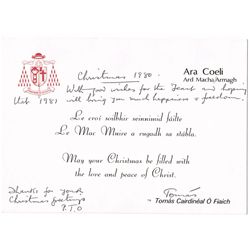 Christmas 1980.
Ara Coeli
Ard Macha/Armagh
With good wishes for the feast and hoping
that 1981 will bring you much happiness & freedom.
Le croí soilbhir seinnimid fáilte
Le Mac Muire a rugadh sa stábla.
May your Christmas be filled with
the love and peace of Christ.
Thanks for your
Christmas greetings
P.T.O
Tomás
Tomás Cairdinéal Ó Fiaich